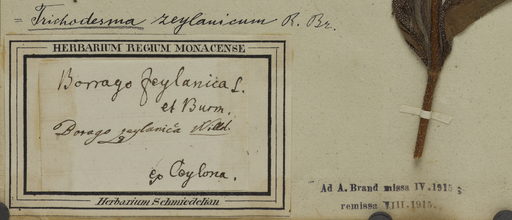 = Trichodesma zeylanicum R. Br.
HERBARIUM REGIUM MONACENSE
Borrago zeylanica L.
et Burm.
Borago zeylanica Willd.
ex Ceylona.
Herbarium Schmiedelian
Ad A. Brand missa IV. 1915;
remissa VIII. 1915.